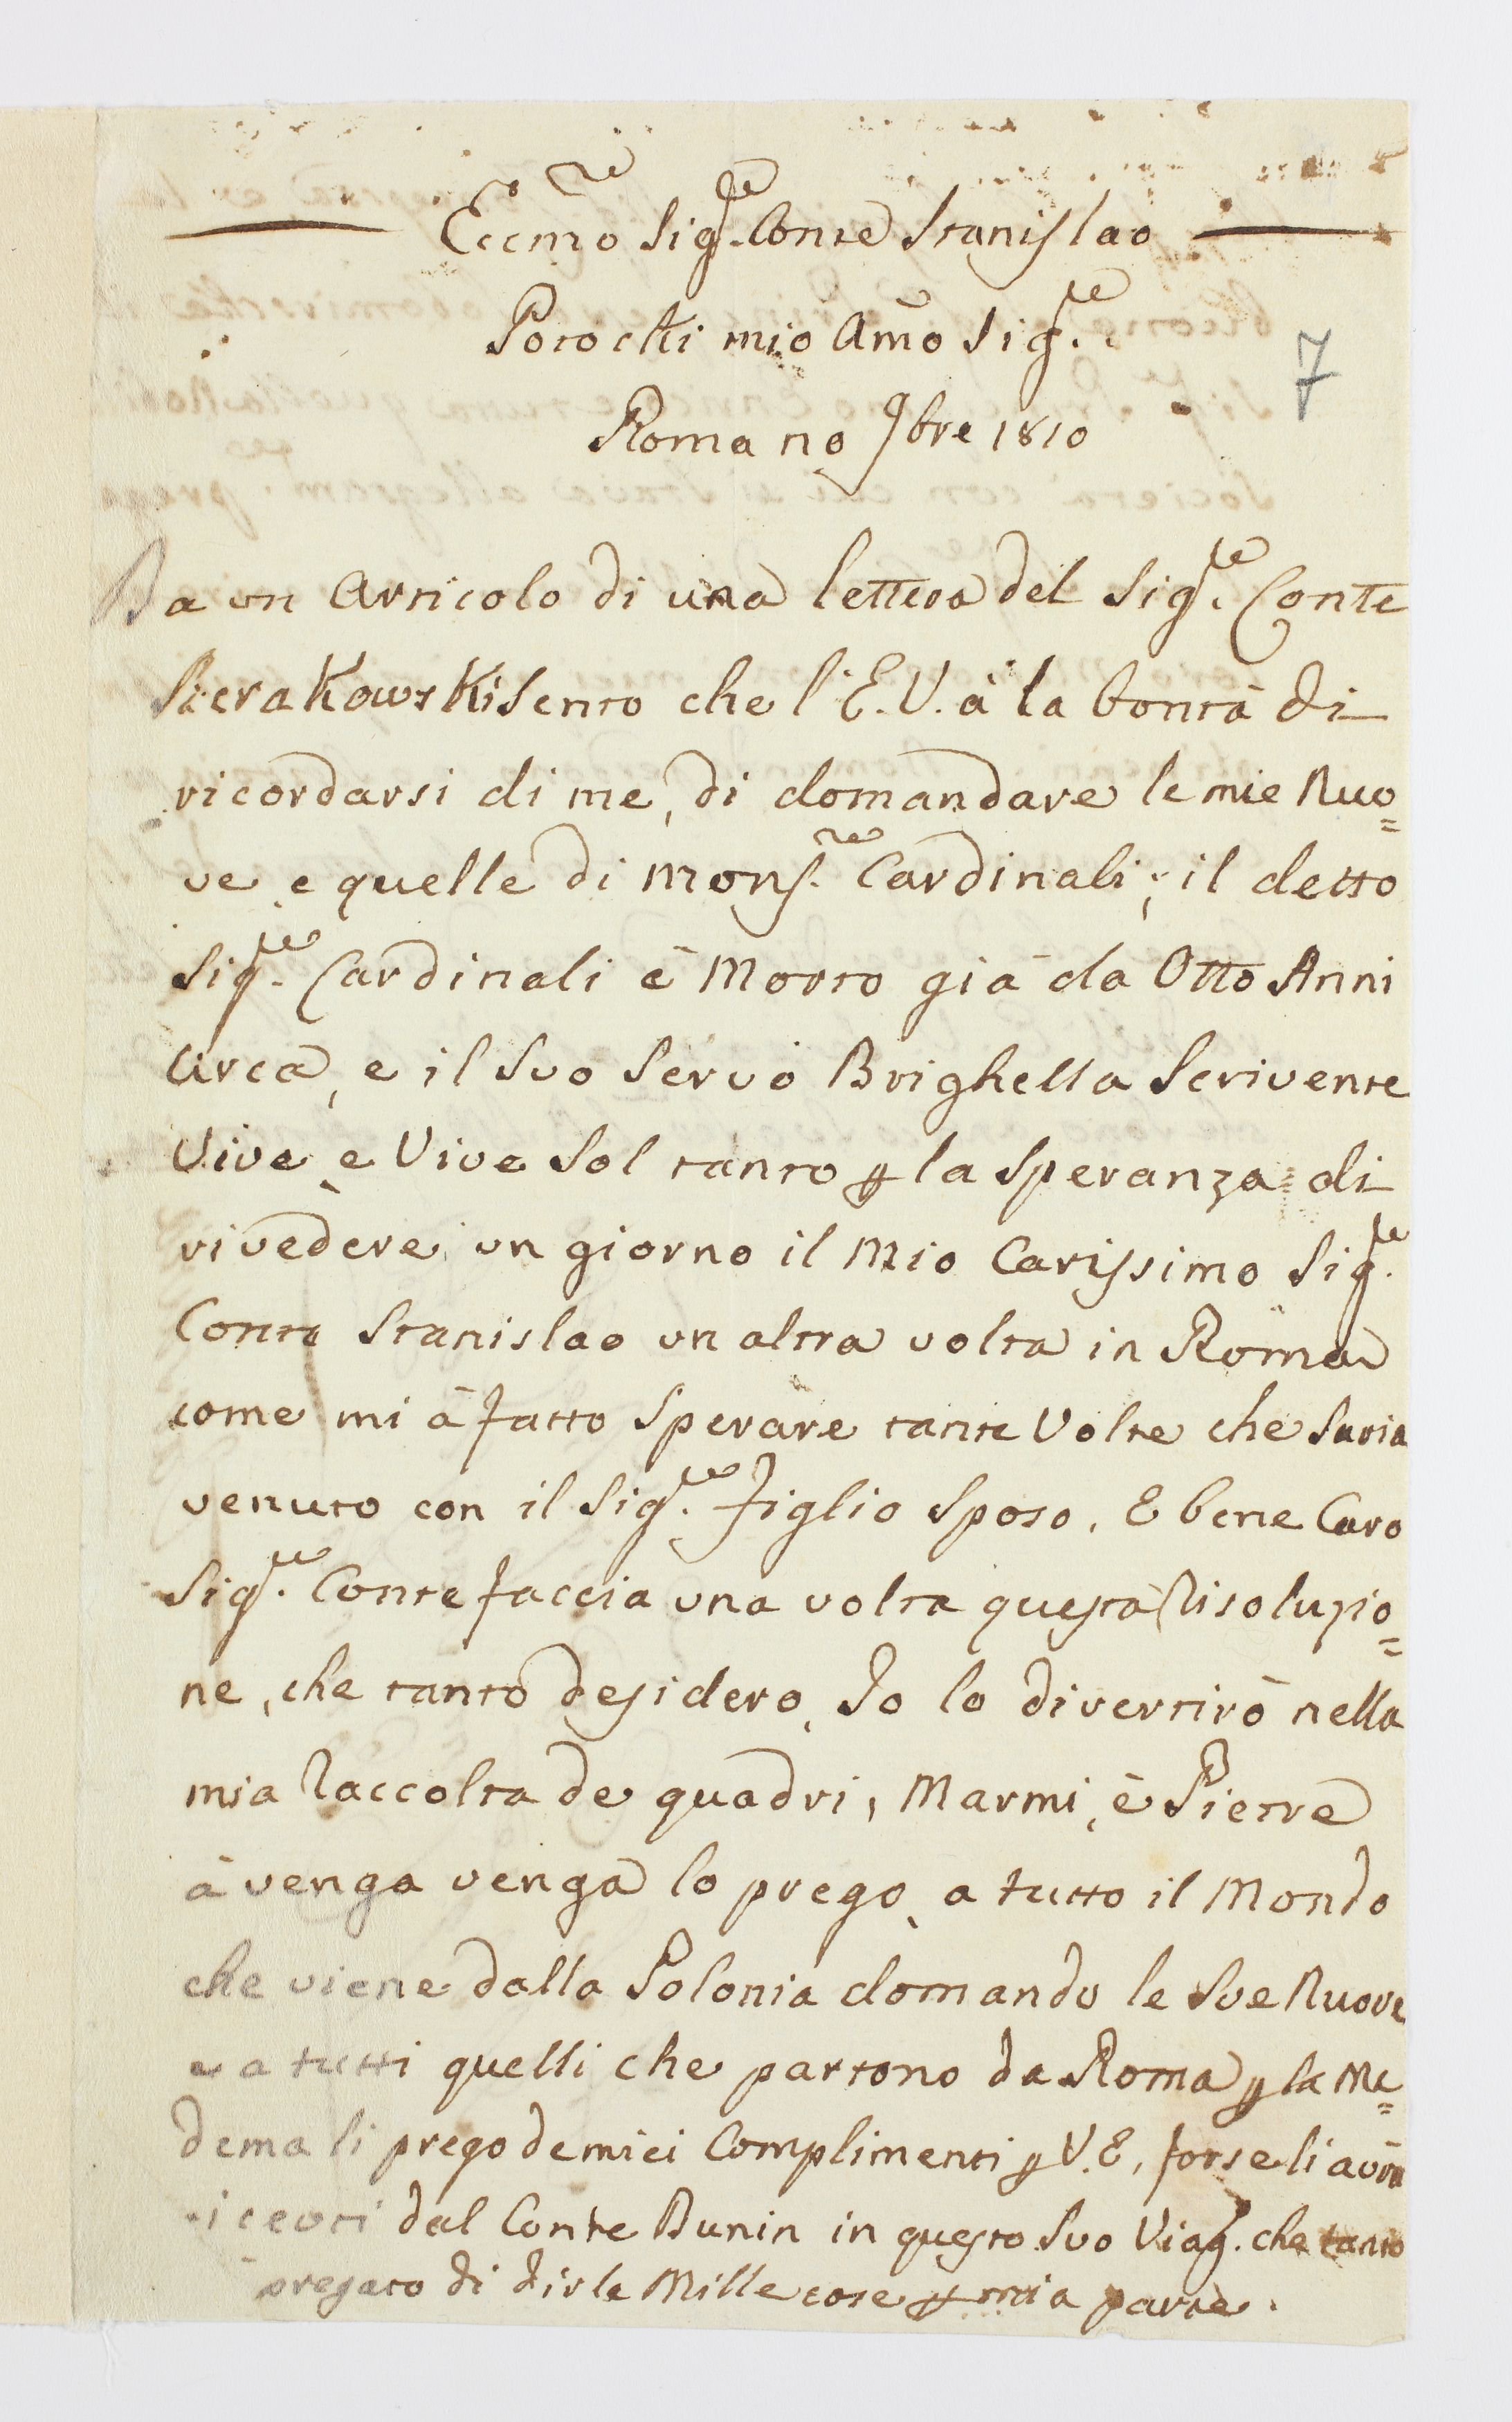 Eccmo Sigre. Conte Stanislao
Potocki mio Amo Sigre.
7
Roma no 9bre 1810
Da un Articolo di una lettera del Sigre. Conte
Sierakowski Sento che l'E. V. à la bontà di
ricordarsi di me, di domandare le mie Nuo=
ve e quelle di Monsre. Cardinali; il detto
Sigre. Cardinali è Morto già da Otto Anni
circa, e il Suo Servo Brighella Scrivente
Vive, e Vive Sol tanto p la Speranza di
rivedere un giorno il Mio Carissimo Sigre.
Conte Stanislao un altra volta in Roma
come mi à fatto Sperare tante Volte che Saria
venuto con il Sigre. Figlio Sposo. E bene Caro
Sigre. Conte faccia una volta questa Risoluzio=
ne, che tanto desidero, Io lo divertirò nella
mia Raccolta de quadri, Marmi, è Pietre
à venga venga lo prego, a tutto il Mondo
che viene dalla Polonia domando le Sue Nuove
e a tutti quelli che partono da Roma p la Me=
dema li prego de miei Complimenti p V. E, forse li avrà
ricevuti dal Conte Bunin in questo Suo Viag. che tanto
pregato di dirle Mille cose p mia parte.